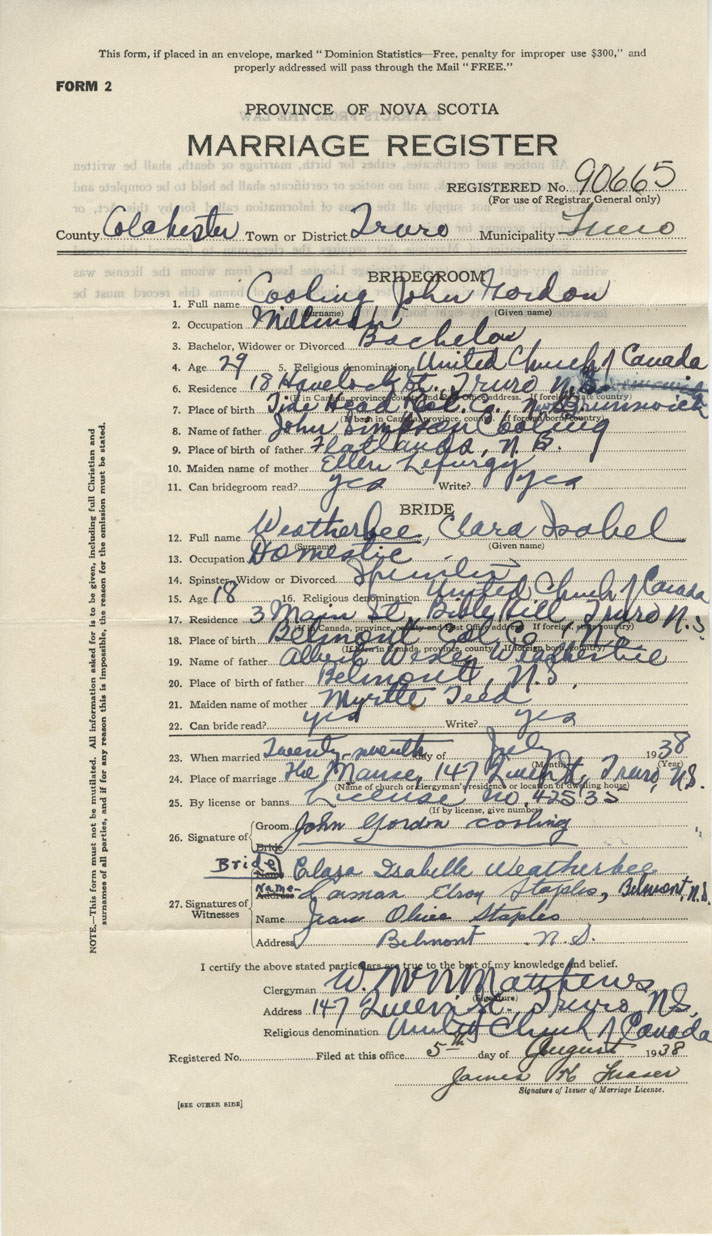 This form, if placed in an envelope, marked "Dominion Statistics—Free, penalty for improper use $300," and
properly addressed will pass through the Mail "FREE."
FORM 2
PROVINCE OF NOVA SCOTIA
MARRIAGE REGISTER
REGISTERED No. 90665
(For use of Registrar General only)
County Colchester Town or District Truro Municipality Truro
BRIDEGROOM
1. Full name Cooling John Gordon
(Surname) (Given name)
2. Occupation Millman
3. Bachelor, Widower or Divorced Bachelor
4. Age 29 5. Religious denomination United Church of Canada
6. Residence 18 Havelock St., Truro N.S.
(If in Canada, province, county and Post Office address. If foreign state country)
7. Place of birth Tide Head, Rest. Co., N. Brunswick
(If born in Canada, province, county. If foreign born country)
8. Name of father John Cooling
9. Place of birth of father Flatlands, N.B.
10. Maiden name of mother Ellen Lefurgy
11. Can bridegroom read? yes Write? yes
BRIDE
12. Full name Weatherbee, Clara Isabel
(Surname) (Given name)
13. Occupation Domestic
14. Spinster, Widow or Divorced Spinster
15. Age 18 16. Religious denomination United Church of Canada
17. Residence 3 Main St., Bible Hill, Truro N.S.
(If in Canada, province, county and Post Office address. If foreign state country)
18. Place of birth Belmont Col. Co., N.S.
(If born in Canada, province, county. If foreign born, country)
19. Name of father Albert Wesley Weatherbee
20. Place of birth of father Belmont, N.S.
21. Maiden name of mother Myrtle Teed
22. Can bride read? yes Write? yes
23. When married Twenty-seventh day of July 1938
(Month) (Year)
24. Place of marriage The Manse, 147 Queen St., Truro, N.S.
(Name of church or clergyman's residence or location of dwelling house)
25. By license or banns License no. 42535
(If by license, give number)
26. Signature of Groom John Gordon Cooling
Bride
Bride Name Clara Isabelle Weatherbee
Name Address Harman Elroy Staples, Belmont, N.S.
27. Signatures of Witnesses
Name Jean Olive Staples
Address Belmont N.S.
I certify the above stated particulars are true to the best of my knowledge and belief.
Clergyman W. Matthews
(Signature)
Address 147 Queen St., Truro, N.S.
Religious denomination United Church of Canada
Registered No. Filed at this office 5th day of August 1938
James H Fraser
Signature of Issuer of Marriage License.
[SEE OTHER SIDE]
NOTE.—This form must not be mutilated. All information asked for is to be given, including full Christian and
surnames of all parties, and if for any reason this is impossible, the reason for the omission must be stated.